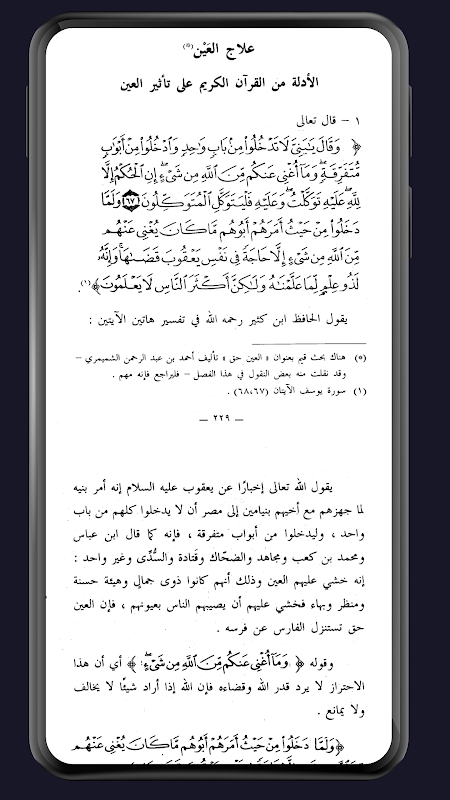 علاج العَيْن(*)
الأدلة من القرآن الكريم على تأثير العين
١ – قال تعالى
﴿ وَقَالَ يَٰبَنِيَّ لَا تَدْخُلُوا۟ مِنۢ بَابٍ وَٰحِدٍ وَٱدْخُلُوا۟ مِنْ أَبْوَٰبٍ
مُّتَفَرِّقَةٍ ۖ وَمَآ أُغْنِى عَنكُم مِّنَ ٱللَّهِ مِن شَىْءٍ ۖ إِنِ ٱلْحُكْمُ إِلَّا
لِلَّهِ ۖ عَلَيْهِ تَوَكَّلْتُ ۖ وَعَلَيْهِ فَلْيَتَوَكَّلِ ٱلْمُتَوَكِّلُونَ ﴿٦٧﴾ وَلَمَّا
دَخَلُوا۟ مِنْ حَيْثُ أَمَرَهُمْ أَبُوهُم مَّا كَانَ يُغْنِى عَنْهُم
مِّنَ ٱللَّهِ مِن شَىْءٍ إِلَّا حَاجَةً فِى نَفْسِ يَعْقُوبَ قَضَىٰهَا ۚ وَإِنَّهُۥ
لَذُو عِلْمٍ لِّمَا عَلَّمْنَٰهُ وَلَٰكِنَّ أَكْثَرَ ٱلنَّاسِ لَا يَعْلَمُونَ ﴾(١) .
يقول الحافظ ابن كثير رحمه الله في تفسير هاتين الآيتين :
(*) هناك بحث قيم بعنوان « العين حق » تأليف أحمد بن عبد الرحمن الشميمري –
وقد نقلت منه بعض النقول في هذا الفصل – فليراجع فإنه مهم .
(١) سورة يوسف الآيتان (٦٨،٦٧) .
– ٢٢٩ –
يقول الله تعالى إخبارًا عن يعقوب عليه السلام إنه أمر بنيه
لما جهزهم مع أخيهم بنيامين إلى مصر أن لا يدخلوا كلهم من باب
واحد ، وليدخلوا من أبواب متفرقة ، فإنه كما قال ابن عباس
ومحمد بن كعب ومجاهد والضحّاك وقتادة والسُّدِّى وغير واحد :
إنه خشي عليهم العين وذلك أنهم كانوا ذوى جمالٍ وهيئة حسنة
ومنظر وبهاء فخشي عليهم أن يصيبهم الناس بعيونهم ، فإن العين
حق تستنزل الفارس عن فرسه .
وقوله ﴿ وَمَآ أُغْنِى عَنكُم مِّنَ ٱللَّهِ مِن شَىْءٍ ۖ ﴾ أي أن هذا
الاحتراز لا يرد قدر الله وقضاءه فإن الله إذا أراد شيئًا لا يخالف
ولا يمانع .
﴿ وَلَمَّا دَخَلُوا۟ مِنْ حَيْثُ أَمَرَهُمْ أَبُوهُم مَّا كَانَ يُغْنِى عَنْهُم